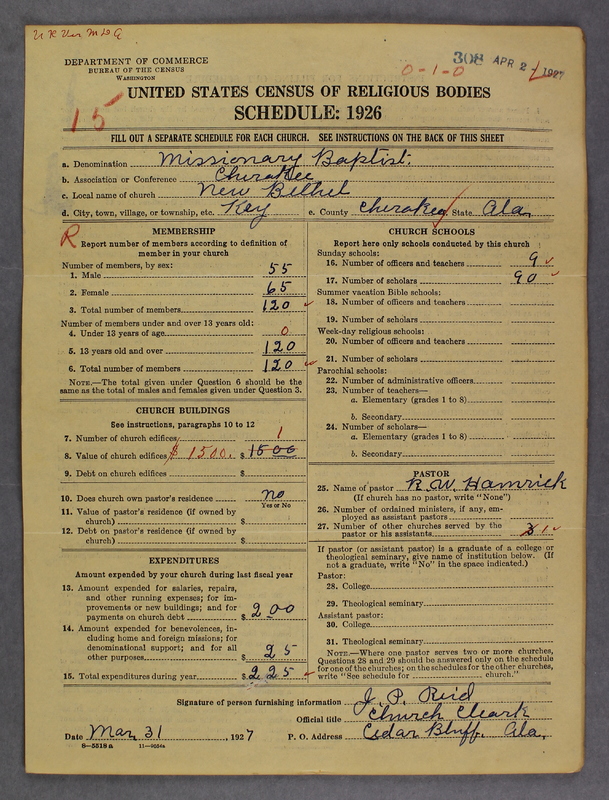 DEPARTMENT OF COMMERCE
BUREAU OF THE CENSUS
WASHINGTON
308 APR 2- 1927
0-1-0
15
UNITED STATES CENSUS OF RELIGIOUS BODIES
SCHEDULE: 1926
FILL OUT A SEPARATE SCHEDULE FOR EACH CHURCH. SEE INSTRUCTIONS ON THE BACK OF THIS SHEET
a. Denomination Missionary Baptist.
b. Association or Conference Cherokee
c. Local name of church New Bethel
d. City, town, village, or township, etc. Key e. County Cherokee State Ala.
R
MEMBERSHIP
Report number of members according to definition of
member in your church
Number of members, by sex:
1. Male 55
2. Female 65
3. Total number of members 120
Number of members under and over 13 years old:
4. Under 13 years of age 0
5. 13 years old and over 120
6. Total number of members 120
NOTE.—The total given under Question 6 should be the
same as the total of males and females given under Question 3.
CHURCH BUILDINGS
See instructions, paragraphs 10 to 12
7. Number of church edifices 1
8. Value of church edifices $ 1500. $ 1500
9. Debt on church edifices $
10. Does church own pastor's residence no
Yes or No
11. Value of pastor's residence (if owned by
church) $
12. Debt on pastor's residence (if owned by
church) $
EXPENDITURES
Amount expended by your church during last fiscal year
13. Amount expended for salaries, repairs,
and other running expenses; for im-
provements or new buildings; and for
payments on church debt $ 200
14. Amount expended for benevolences, in-
cluding home and foreign missions; for
denominational support; and for all
other purposes $ 25
15. Total expenditures during year $ 225
CHURCH SCHOOLS
Report here only schools conducted by this church
Sunday schools:
16. Number of officers and teachers 9
17. Number of scholars 90
Summer vacation Bible schools:
18. Number of officers and teachers
19. Number of scholars
Week-day religious schools:
20. Number of officers and teachers
21. Number of scholars
Parochial schools:
22. Number of administrative officers
23. Number of teachers—
a. Elementary (grades 1 to 8)
b. Secondary
24. Number of scholars—
a. Elementary (grades 1 to 8)
b. Secondary
PASTOR
25. Name of pastor R. W. Hamrick
(If church has no pastor, write "None")
26. Number of ordained ministers, if any, em-
ployed as assistant pastors
27. Number of other churches served by the
pastor or his assistants 3 1
If pastor (or assistant pastor) is a graduate of a college or
theological seminary, give name of institution below. (If
not a graduate, write "No" in the space indicated.)
Pastor:
28. College
29. Theological seminary
Assistant pastor:
30. College
31. Theological seminary
NOTE.—Where one pastor serves two or more churches,
Questions 28 and 29 should be answered only on the schedule
for one of the churches; on the schedules for the other churches,
write "See schedule for church."
Signature of person furnishing information J. P. Reid
Official title Church Cleark
Date Mar 31, 1927 P. O. Address Cedar Bluff. Ala.
8—5518a 11—9054a